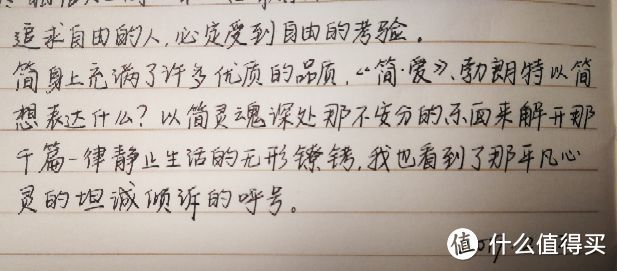 追求自由的人,必定受到自由的考验。
简身上充满了许多优质的品质,《简·爱》、勃朗特以简
想表达什么?以简灵魂深处那不安分的东西来解开那
千篇一律静止生活的无形镣铐,我也看到了那平凡心
灵的坦诚倾诉的呼号。
值 什么值得买